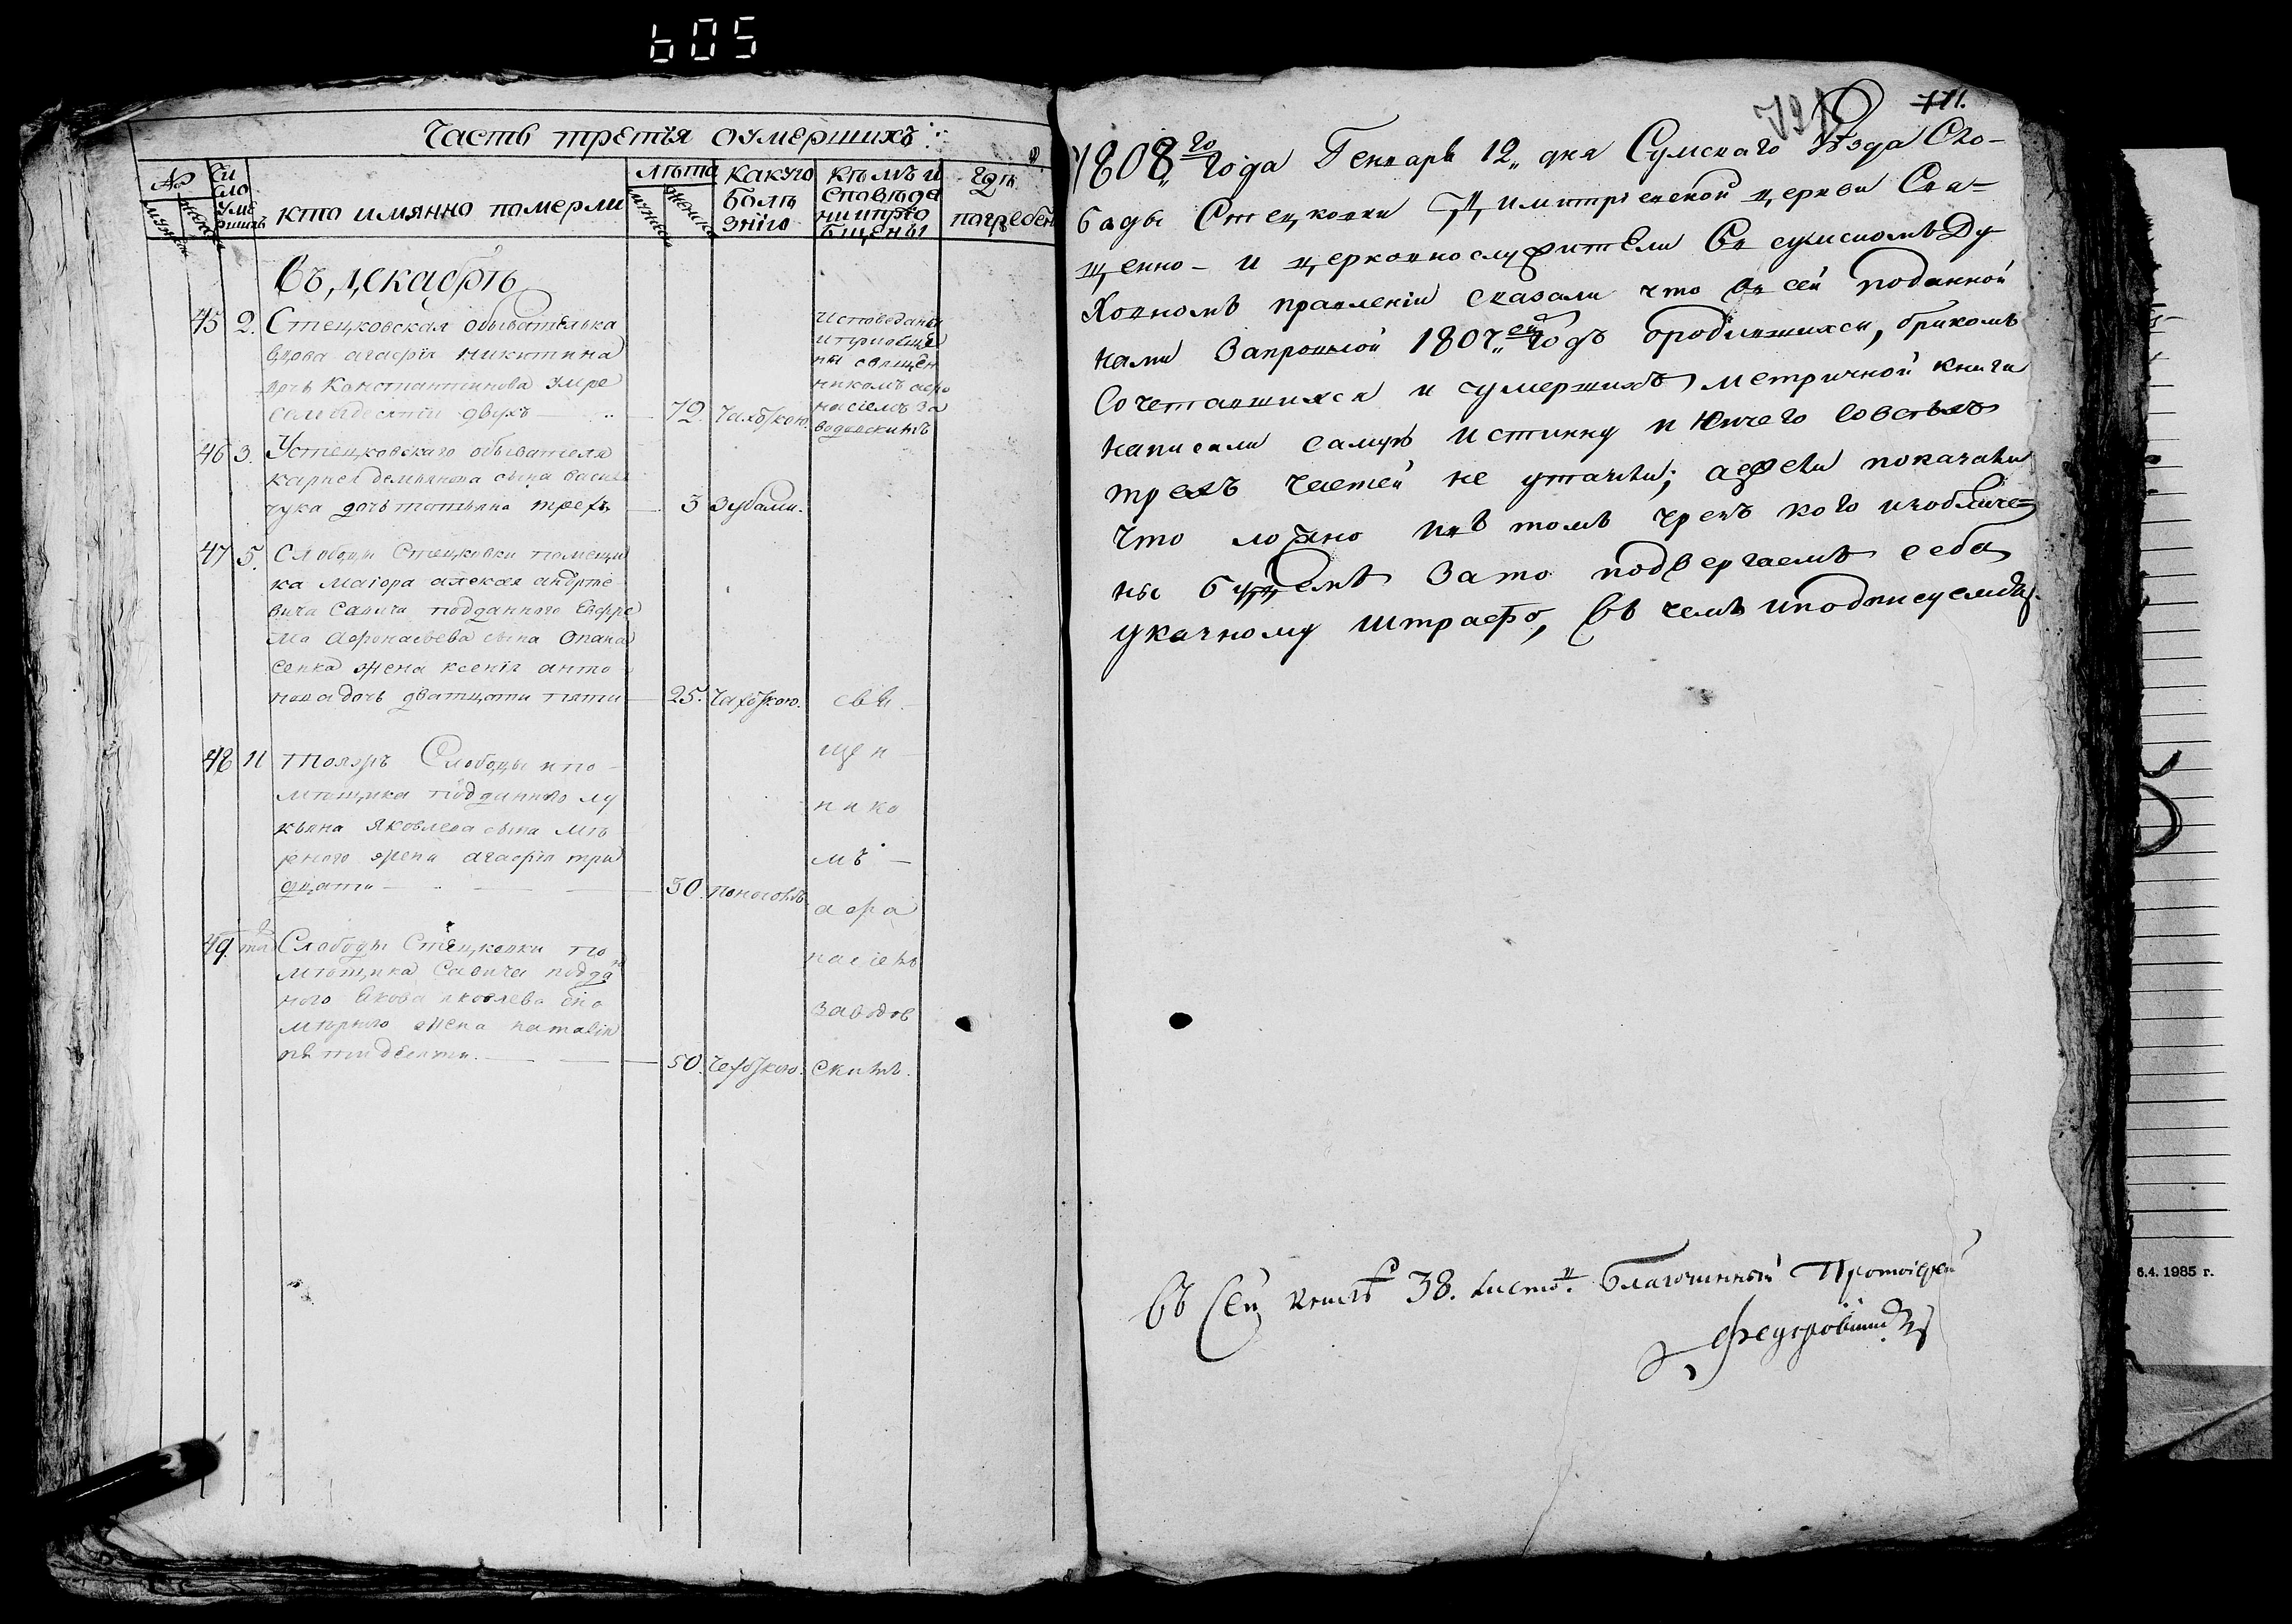 605
Часть третія оумершихъ
№
мужеска
женска
Чи
сло
уме
ршихъ
кто имянно померли
лѣта
мужеска
женска
какую
болѣ
знію
кѣмъ и
сповѣда
ни и прио
бщены
гдѣ
погребен
въ декабрѣ
45 2. Стецковская обывателька
вдова агафія никитина
дочь Константинова умре
семидесяти двухъ — 72. Чахоткою.
исповедана
и приобще
ны священ
никомъ афа
насіемъ за
водовскимъ
46 3. Устецковскаго обывателя
карпея демянова сына васил
чука дочь татьяна трехъ — 3 Зубами.
47 5. Слободы Стецковки помещи
ка маіора
Савича подданного Ефре
ма Афонасьева сына Опана
сенка жена ксенія анто
нова дочь дватцати пяти — 25. Чахоткою.
48 11 тояжъ Слободы и по
мѣщика подданного лу
кьяна Яковлева сына
жена агафія три
дцати — 30. поносомъ
49. Слободы Стецковки по
мѣщика Савича подда
ного Якова яковлева сна
жена наталія
пятидесяти. — 50. Чахоткою.
свя
щен
нико
мъ —
афа
насіемъ
заводов
скимъ.
791
771.
1808го года Генваря 12 дня Сумскаго Уѣзда Сло-
боды Стецковки Димитріевской церкви Свя-
щенно- и церковнослужители Въ сумскомъ Ду-
ховномъ правленіи сказали что въ сей поданной
нами Запрошлой 1807й годъ ородившихся, бракомъ
Сочетавшихся и оумершихъ метричной книги
написали самую истинну и ничего вовсехъ
трехъ частей не утаили; а ежели показали
что ложно и въ томъ чрезъ кого изобличе-
ны будемъ За то подвергаемъ себя
указному штрафо, Въ чемъ и подписуемся.
Въ Сей книгѣ 38. листовъ. Благочинный Протоіерей
6.4.1985 г.